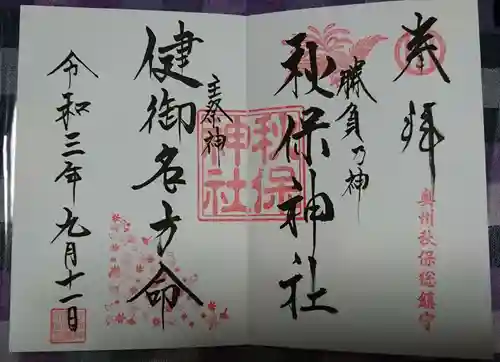 奉拝
奥州秋保総鎮守
勝負乃神
秋保神社
秋保神社
主祭神
健御名方命
令和三年九月十一日